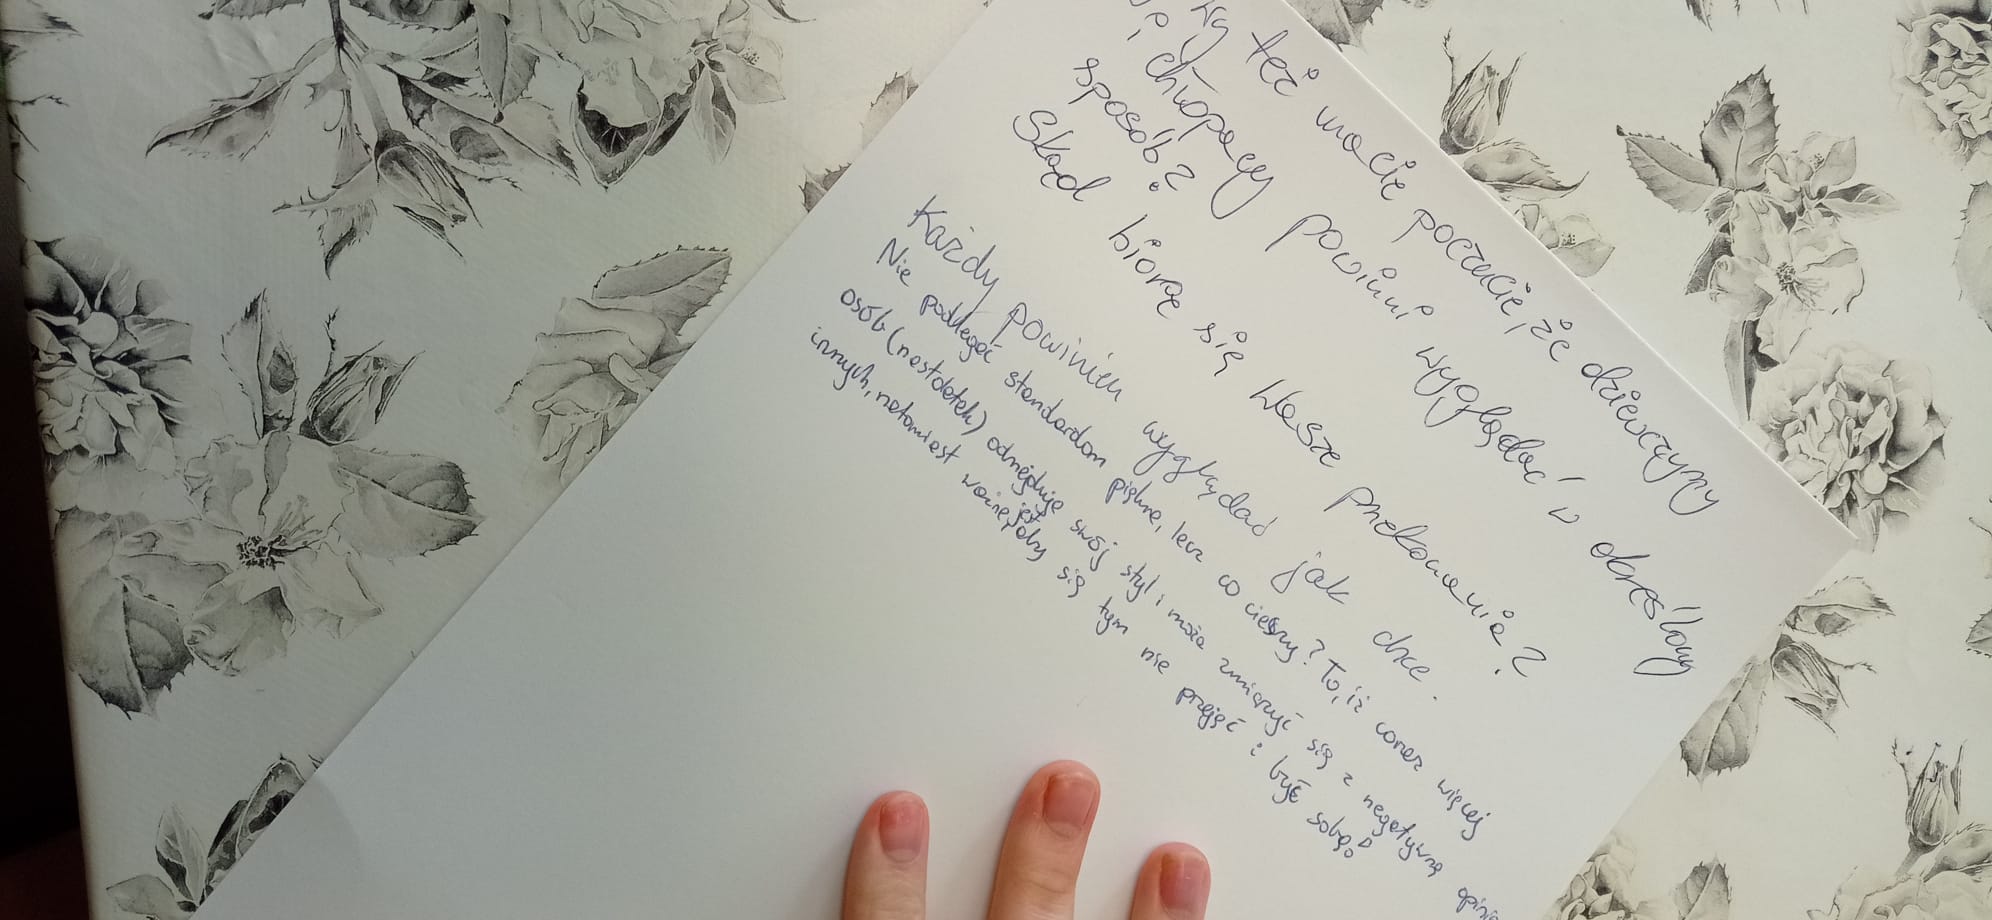 wy też macie poczucie, że dziewczyny
i chłopacy powinni wyglądać w określony
sposób?
Skąd biorą się Wasze przekonania?
Każdy powinien wyglądać jak chce.
Nie podlegać standardom piękna, lecz co cieszy? To, iż coraz więcej
osób (nastolatek) odnajduje swój styl i może zmierzyć się z negatywną opinią
innych, natomiast ważne jest, aby się tym nie przejąć i być sobą!